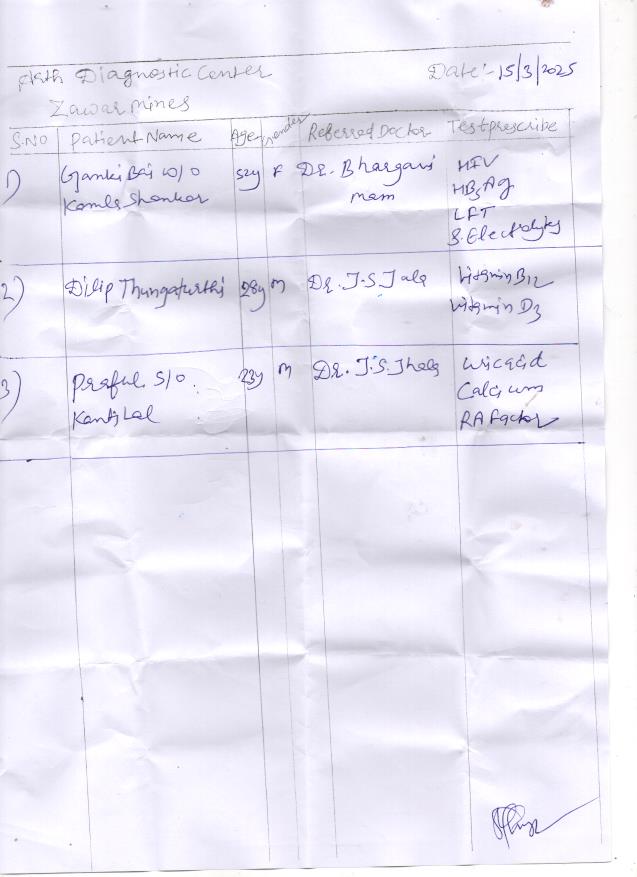 Diagnostic Center Date:- 15/3/2025
Zawar mines
S.NO Patient Name Age Gender Referred Doctor Test prescribe
1) Ganki Bai W/O 52y F Dr. Bhargavi HIV
Kamle Shankar mam HBsAg
LFT
S. Electrolytes
2) Dilip Thungaturthi 28y M Dr. J.S Jala Vitamin B12
Vitamin D3
3) Praful S/O. 23y M Dr. J.S. Jhala Uric acid
Kantilal Calcium
RA Factor